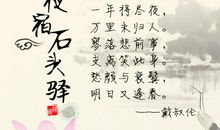 夜宿
石头驿
一年将尽夜，
万里未归人。
寥落悲前事，
支离笑此身。
愁颜与衰鬓，
明日又逢春。
——戴叔伦